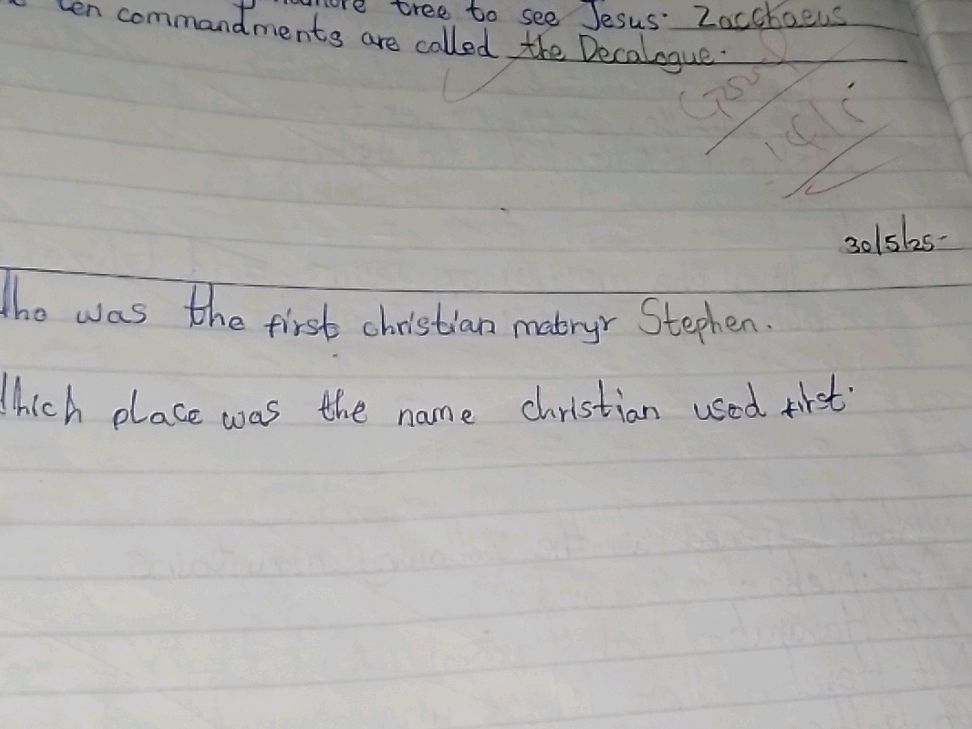 tree to see Jesus. Zacchaeus
ten commandments are called the Decalogue.
Good
30/5/25
ho was the first christian matryr Stephen.
hich place was the name christian used first.